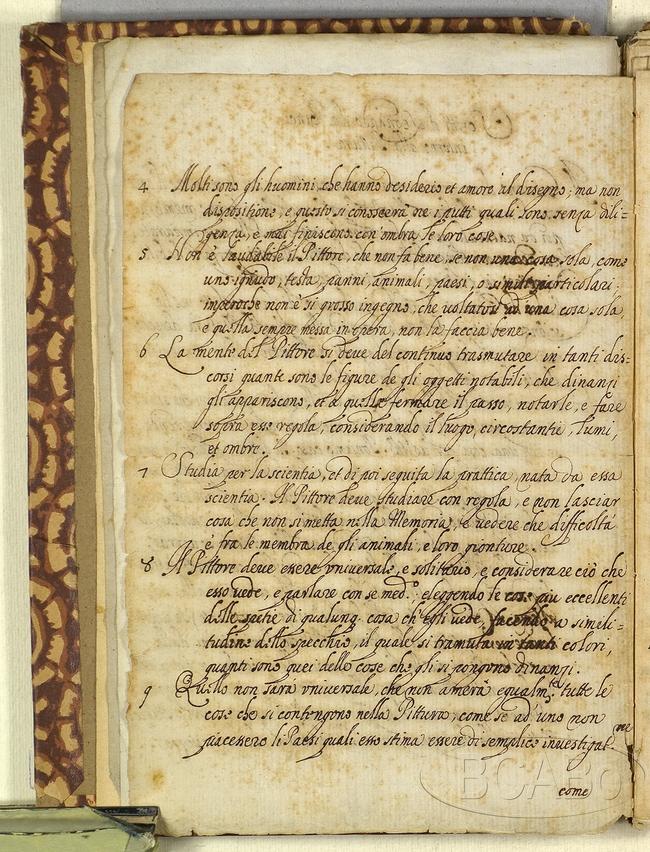 4 Molti sono gli huomini che hanno desiderio et amore al disegno; ma non
dispositione, e questo si conoscerà ne i putti quali sono senza dili=
genza, e mai finiscono con ombra le loro cose.
5 Non è laudabile il Pittore, che non fa bene, se non una cosa sola, come
uno ignudo, testa, panni, animali, paesi, o simili particolari;
imperoche non è si grosso ingegno, che voltatosi ad una cosa sola,
e quella sempre messa in opera, non la faccia bene.
6 La mente del Pittore si deve del continuo trasmutare in tanti dis=
corsi quante sono le figure de gli oggetti notabili, che dinanzi
gli appariscono, et a quelle fermare il passo, notarle, e fare
sopra esse regola, considerando il luogo, circostantie, lumi,
et ombre.
7 Studia per la scientia, et di poi seguita la prattica, nata da essa
scientia. Il Pittore deve studiare con regola, e non lasciar
cosa che non si metta nella Memoria, e vedere che difficoltà
è fra le membra de gli animali, e loro gionture.
8 Il Pittore deve essere universale, e solitario, e considerare ciò che
esso vede, e parlare con se med.º, eleggendo le cose piu eccellenti
delle spetie di qualunq. cosa ch'egli vede, facendo a simili=
tudine dello specchio, il quale si tramuta in tanti colori,
quanti sono quei delle cose che gli si pongono dinanzi.
9 Quello non sarà universale, che non amerà egualm.te tutte le
cose che si contengono nella Pittura, come se ad uno non
piacessero li Paesi quali esso stima essere di semplice investigat.ne
come
BCABo